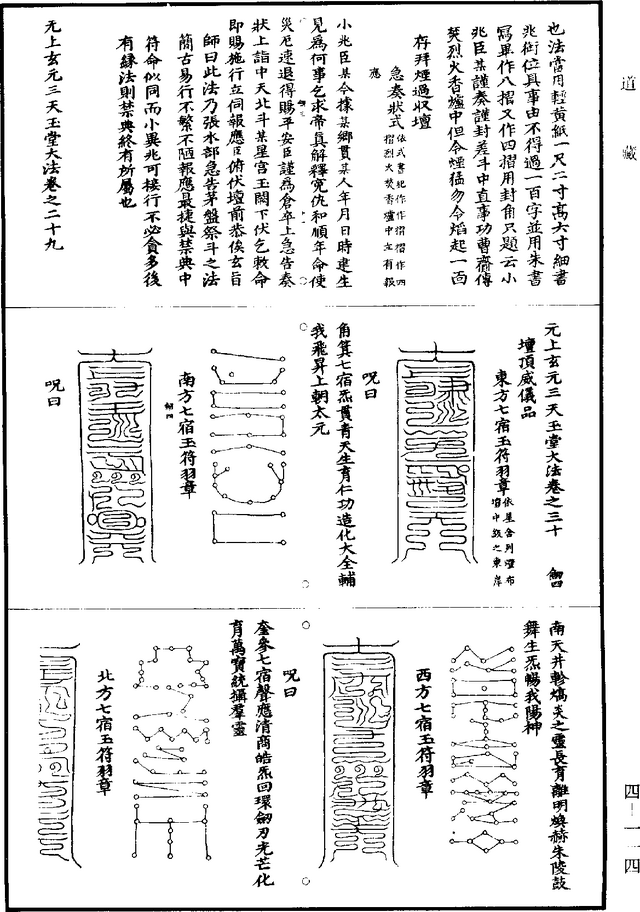 道藏
也法當用輕黃紙一尺二寸高六寸細書
兆銜位具事由不得過一百字並用朱書
寫畢作八摺又作四摺用封角只題云小
兆臣某謹奏謹封差斗中直事功曹齎傳
焚烈火香爐中但令煙猛勿令焰起一面
存拜煙過収壇
急奏狀式
應
小兆臣某今據某鄉貫某人年月日時建生
見為何事乞求帝真解釋冤仇和順年命使
災厄速退得賜平安臣謹為倉卒上急告奏
狀上詣中天北斗某星宮玉闕下伏乞敕命
即賜施行立伺報應臣俯伏壇前恭俟玄旨
師曰此法乃張水部急告茅盤祭斗之法
簡古易行不繁不陋報應最捷與禁典中
符命似同而小異兆可接行不必貪多後
有緣法則禁典終有所屬也
无上玄元三天玉堂大法卷之二十九
无上玄元三天玉堂大法卷之三十
壇頂威儀品
東方七宿玉符羽章
依星舍列燈布
壇中級之東岸
呪曰
角箕七宿炁貫青天生育仁功造化大全輔
我飛昇上朝太元
南方七宿玉符羽章
呪曰
南天井軫熇炎之靈長育離明煥赫朱陵鼓
舞生炁暢我陽神
西方七宿玉符羽章
呪曰
奎參七宿聲應清商皓炁回環劒刃光芒化
育萬寶統攝羣靈
北方七宿玉符羽章
四-一一四